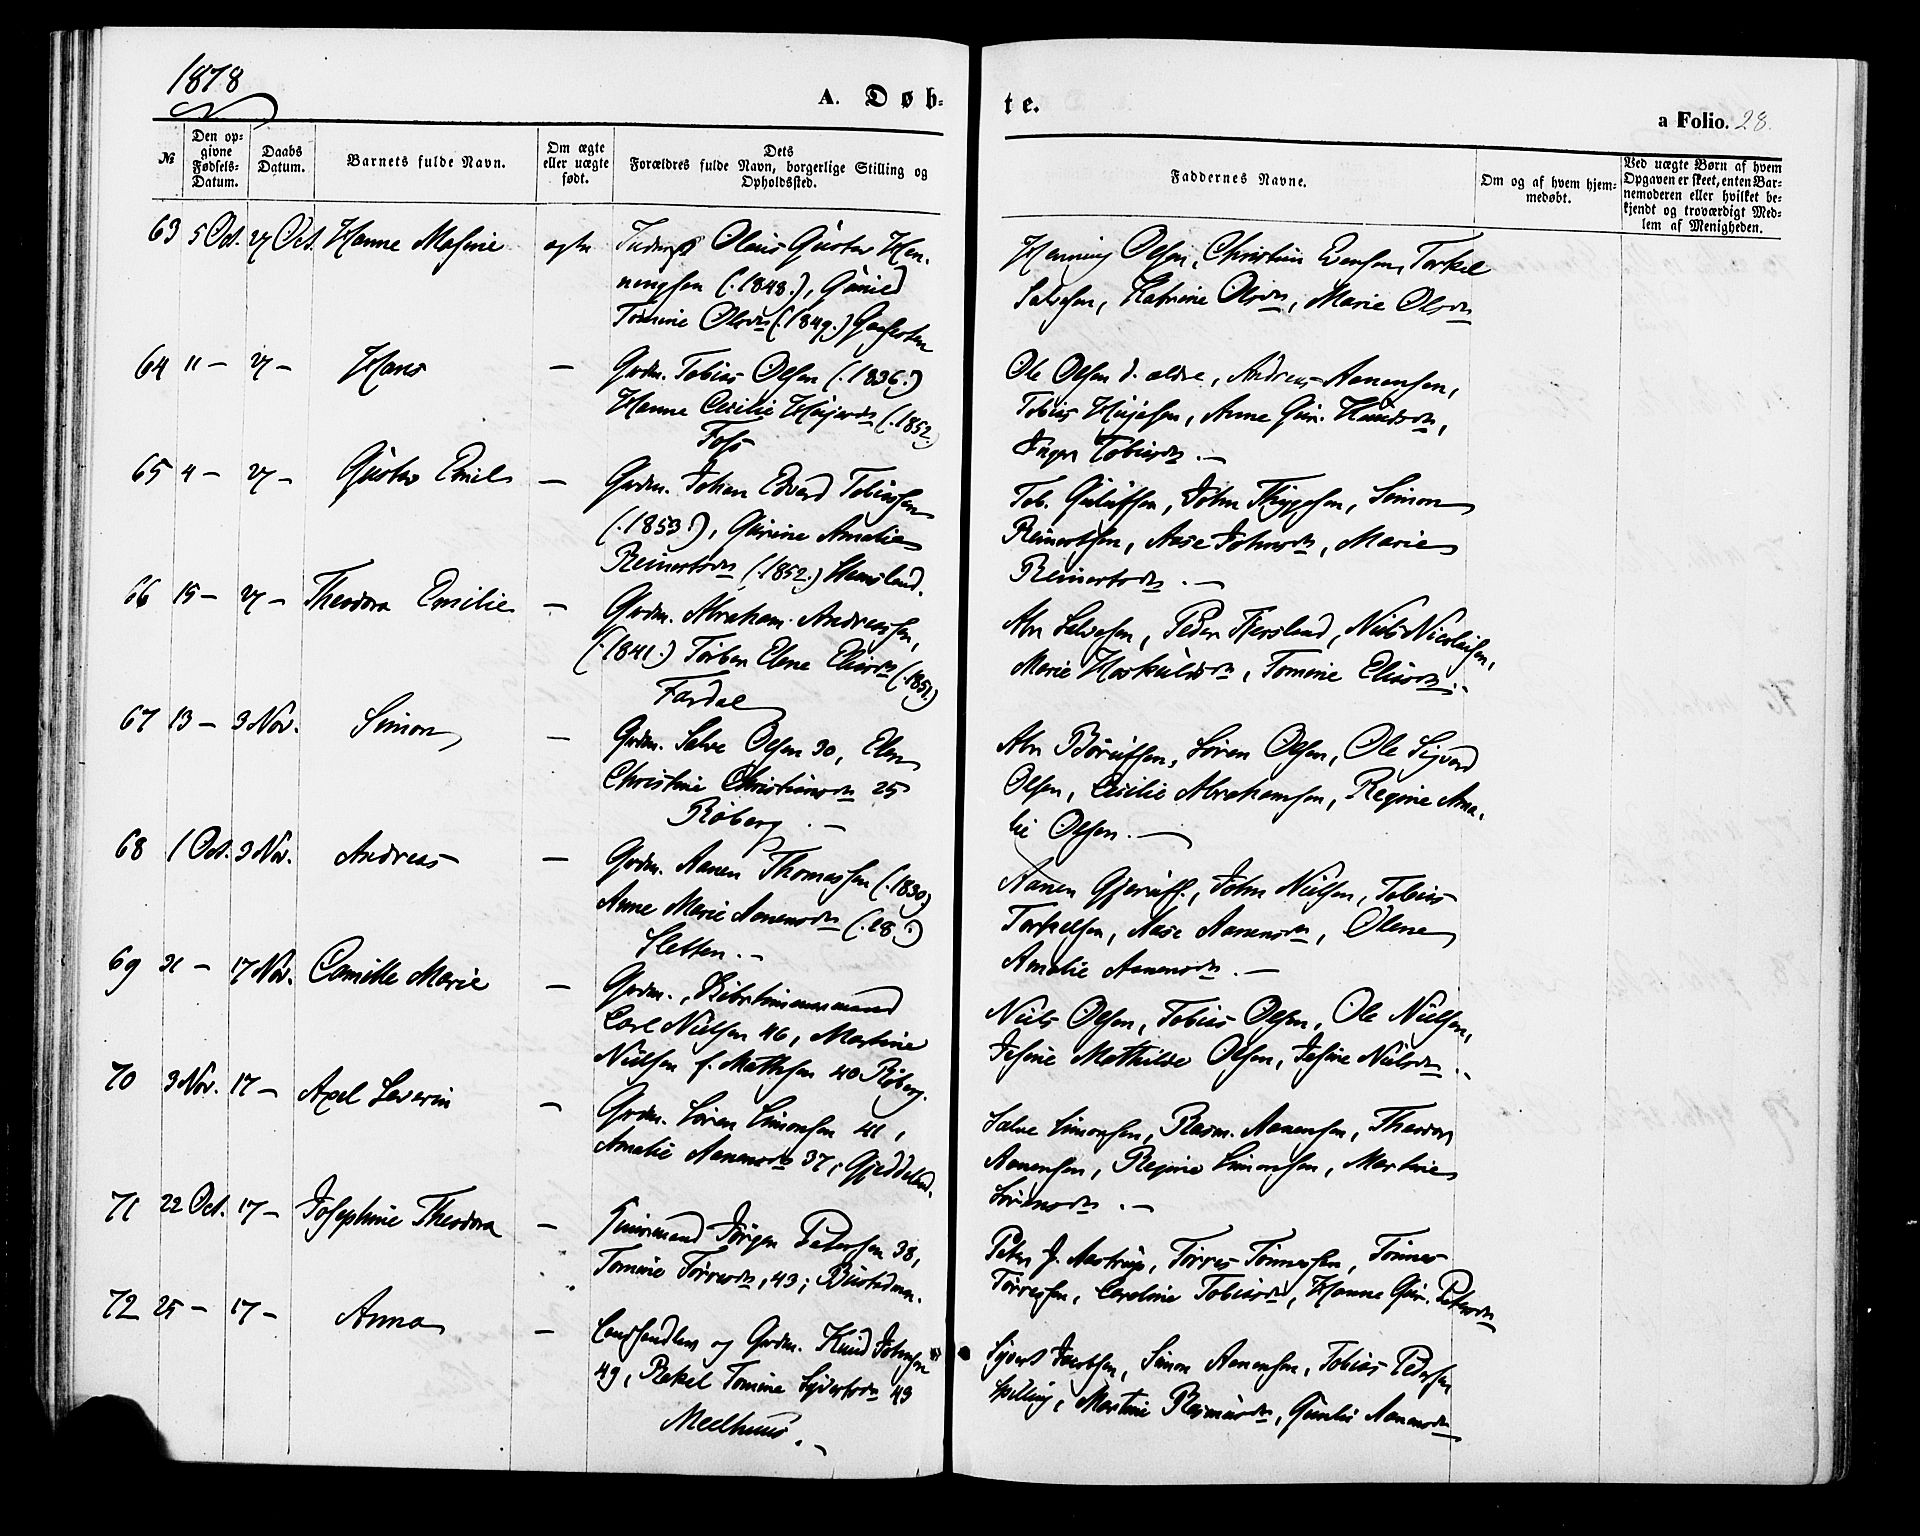 1878
A. Døb-
te.
a Folio. 28.
№
Den op-
givne
Fødsels-
Datum.
Daabs
Datum.
Barnets fulde Navn.
Om ægte
eller uægte
født.
Dets
Forældres fulde Navn, borgerlige Stilling og
Opholdssted.
Faddernes Navne.
Om og af hvem hjem-
medøbt.
Ved uægte Børn af hvem
Opgaven er skeet, enten Bar-
nemoderen eller hvilket be-
kjendt og troværdigt Med-
lem af Menigheden.
63 5 Oct. 27 Oct. Hanne Mafine ægte
Olaus Gustav Hen-
ningsen (:1848:), Gunild
Tomine Olsdr (:1849:)
Henning Olsen, Christian Evensen, Torkel
Salvesen, Katrine Olsdr, Marie Olsdr
64 11 - 27 - Hans —
Grdm. Tobias Olsen (:1836:)
Hanne Cecilie (:1852:)
Foss
Ole Olsen d. ældre, Andreas Aanensen,
Tobias Anne Gur. Knudsdr,
Inger Tobiasdr. —
65 4 - 27 - Gustav Emil —
Grdm. Johan Edvard Tobiassen
(:1853:), Gurine Amalie
Reinertsdr (:1852:)
Tob. John Thygesen, Simon
Reinertsen, Aase Johnsdr, Marie
Reinertsdr. —
66 15 - 27 - Theodora Emilie —
Grdm. Abraham Andreassen,
(:1841:) Torbor Elene Eliasdr (:1851:)
Fardal
Abr Salvesen, Peder Niels Nicolaisen,
Marie Tomine Eliasdr. -
67 13 - 3 Nov. Simon —
Grdm. Salve Olsen 30, Elen
Christine Christiansdr 25
Røberg. —
Abr Søren Olsen, Ole Sigvard
Olsen, Cecilie Abrahamsen, Regine Ama-
lie Olsen. —
68 1 Oct. 3 Nov. Andreas —
Grdm. Aanen Thomassen (:1830:)
Anne Marie Aanensdr
Sletten. —
Aanen John Nielsen, Tobias
Torkelsen, Aase Aanensdr, Olene
Amalie Aanensdr. —
69 31 - 17 Nov. Camille Marie —
Grdm.,
Carl Nielsen 46, Martine
Nielsen f. Mathesen 40 Røberg.
Niels Olsen, Tobias Olsen, Ole Nielsen,
Josine Mathilde Olsen, Josine Nielsdr. -
70 3 Nov. 17 - Axel Severin —
Grdm. Søren Simonsen 41,
Amalie Aanensdr 37, Gjeddeland.
Salve Simonsen, Rasm. Aanensen, Theodor
Aanensen, Regine Simonsen, Martine
Sørensdr. —
71 22 Oct. 17 - Josephine Theodora —
Jørgen Petersen 38,
Tomine Torresdr, 43;
Peter J. Aastrup, Torres Tønnesen, Tønnes
Torresen, Caroline Tobiasdr, Hanne Gur. Petersdr
72 25 - 17 - Anna —
Landhandler og Grdm. Knud Johnsen
49, Rakel Tomine Syvertsdr 43
Meelhuus. —
Syvert Jacobsen, Simon Aanensen, Tobias Pedersen
Spilling, Martine Rasmusdr, Gunlie Aanensdr